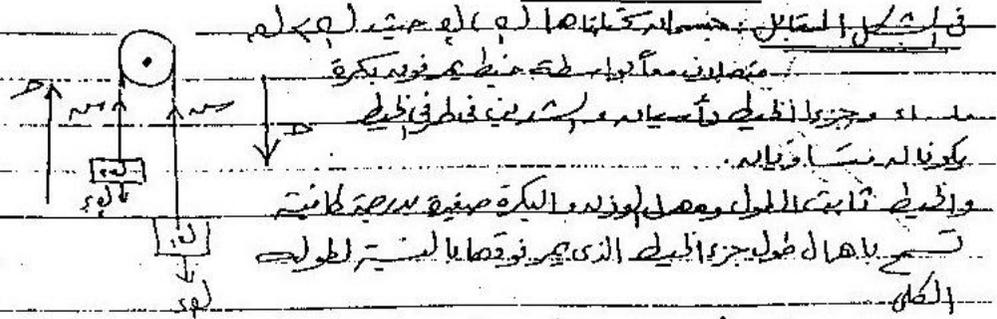 فى الشكل المقابل: جسمان كتلتاهما ك١، ك٢ حيث ك١ > ك٢
متصلان معاً بواسطة خيط يمر فوق بكرة
ملساء وجزءا الخيط رأسيان والشدين فى طرفى الخيط
يكونان متساويان.
والخيط ثابت الطول ومهمل الوزن والبكرة صغيرة بدرجة كافية
تسمح بإهمال طول جزء الخيط الذى يمر فوقها بالنسبة لطوله
الكلى
حـ
سہ
سہ
حـ